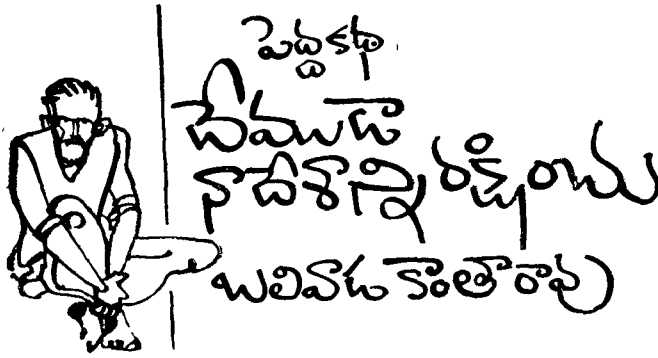 పెద్దకథ
దేముడా
నాదేశాన్ని రక్షించు
బలివాడ కాంతారావు